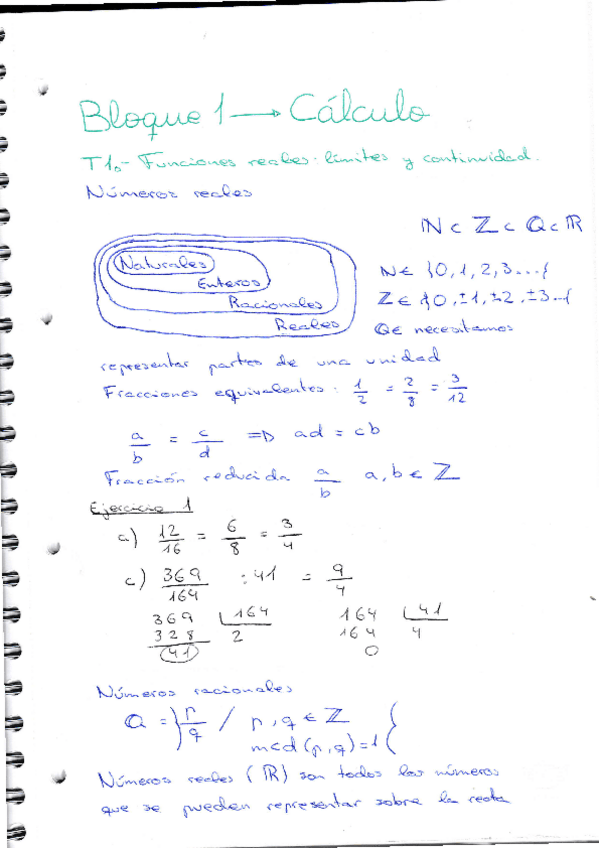 Bloque 1 → Cálculo
T1.- Funciones reales: límites y continuidad.
Números reales
ℕ ⊂ ℤ ⊂ ℚ ⊂ ℝ
Naturales
Enteros
Racionales
Reales
ℕ ∈ {0, 1, 2, 3 ...{
ℤ ∈ {0, ±1, ±2, ±3...{
ℚ ∈ necesitamos
representar partes de una unidad
Fracciones equivalentes: 1/2 = 2/8 = 3/12
a/b = c/d ⇒ ad = cb
Fracción reducida a/b a, b ∈ ℤ
Ejercicio 1
a) 12/16 = 6/8 = 3/4
c) 369/164 : 41 = 9/4
369 | 164
328 2
41
164 | 41
164 4
0
Números racionales
ℚ = }p/q / p, q ∈ ℤ
mcd (p, q) = 1{
Números reales (ℝ) son todos los números
que se pueden representar sobre la recta